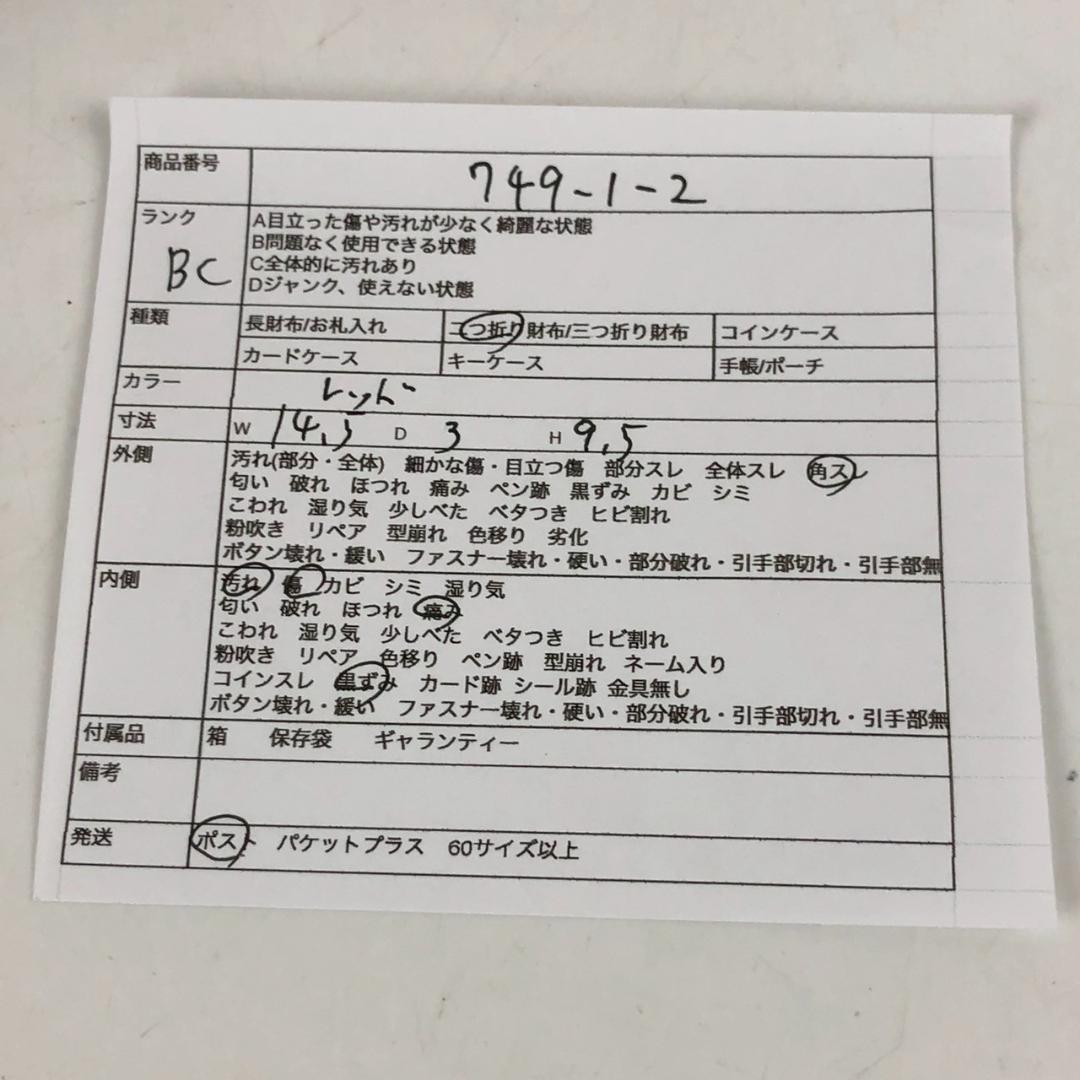 商品番号 749-1-2
ランク BC
A目立った傷や汚れが少なく綺麗な状態
B問題なく使用できる状態
C全体的に汚れあり
Dジャンク、使えない状態
種類 長財布/お札入れ 二つ折り財布/三つ折り財布 コインケース
カードケース キーケース 手帳/ポーチ
カラー レッド
寸法 W 14,5 D 3 H 9,5
外側 汚れ(部分・全体) 細かな傷・目立つ傷 部分スレ 全体スレ 角スレ
匂い 破れ ほつれ 痛み ペン跡 黒ずみ カビ シミ
こわれ 湿り気 少しべた ベタつき ヒビ割れ
粉吹き リペア 型崩れ 色移り 劣化
ボタン壊れ・緩い ファスナー壊れ・硬い・部分破れ・引手部切れ・引手部無
内側 汚れ 傷 カビ シミ 湿り気
匂い 破れ ほつれ 痛み
こわれ 湿り気 少しべた ベタつき ヒビ割れ
粉吹き リペア 色移り ペン跡 型崩れ ネーム入り
コインスレ 黒ずみ カード跡 シール跡 金具無し
ボタン壊れ・緩い ファスナー壊れ・硬い・部分破れ・引手部切れ・引手部無
付属品 箱 保存袋 ギャランティー
備考
発送 ポスト パケットプラス 60サイズ以上